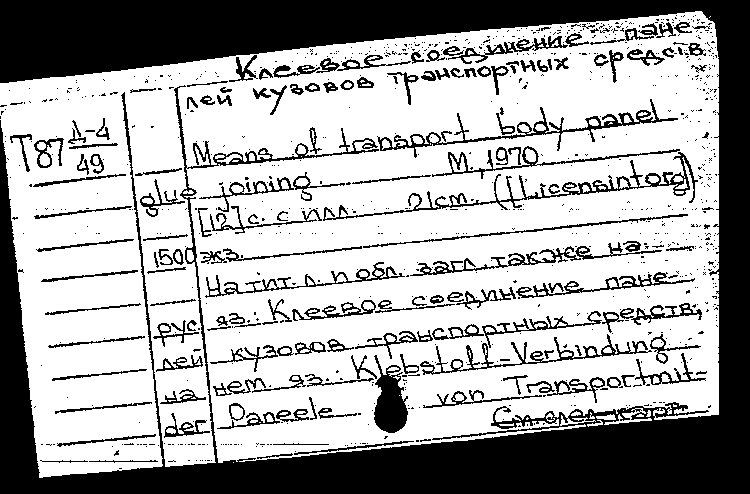 Клеевое соединение пане-
лей кузовов транспортных средств
Т87 Д-4
49
Means of transport body panel
glue joining. М., 1970
[12] с. с илл. 21см. ([Licensintorg])
1500 экз.
На тит. л. и обл. загл. также на
рус. яз.: Клеевое соединение пане-
лей кузовов транспортных средств;
на нем. яз.: Klebstoff-Verbindung
der Paneele von Transportmit-
См. след. карт.